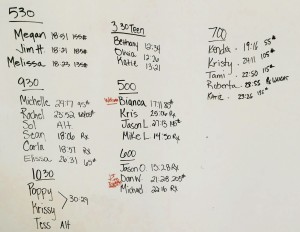 530
Megan 18:51 155#
Jim H. 18:21 185#
Melissa 18:23 135#
930
Michelle 24:77 95#
Rachel 25:52
Sol Alt
Sean 18:06 Rx
Carla 18:57 Rx
Elissa 26:31 65#
1030
Poppy
Krissy
30:29
Tess Alt
3:30 Teen
Bethany 12:34
Olivia
Katie 13:21
500
Bianca 17:11
Kris 25:06 Rx
Jason L. 27:13 145#
Mike L. 14:50 Rx
600
Jason O. 15:28 Rx
Dan W. 21:28 205#
Michael 22:16 Rx
700
Kenda 19:16 55#
Kristy 24:11 105#
Tami 22:50 115#
Roberta 28:55